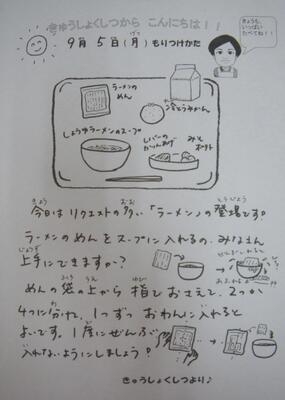 きゅうしょくしつから こんにちは!!
きょうも、
いっぱい
たべてね!!
9月 5日(月)もりつけかた
げつ
ラーメンの
めん
冷とうみかん
しょうゆラーメンのスープ
レバーの
かりんあげ
ポテト
きょう おお とうじょう
今日はリクエストの多い「ラーメン」の登場です。
ラーメンのめんをスープに入れるの、みなさん
じょうず
上手にできますか?
ふくろ うえ ゆび
めんの袋の上から指でおさえて、2つか
4つに分れ、1つずつ おわんに入れると
よいです。1度にぜんぶ
入れないようにしましょう!
きゅうしょくしつより♪